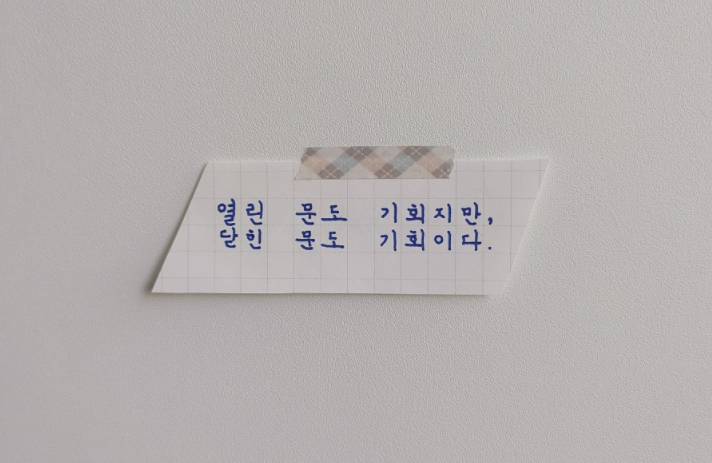 열린 문도 기회지만,
닫힌 문도 기회이다.